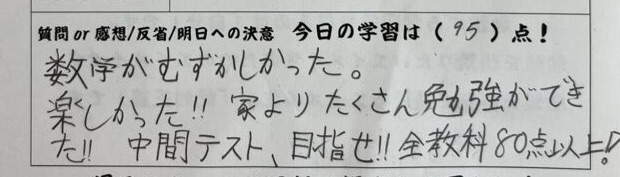 質問 or 感想/反省/明日への決意 今日の学習は(95)点!
数学がむずかしかった。
楽しかった!! 家よりたくさん勉強ができ
た!! 中間テスト、目指せ!! 全教科80点以上!